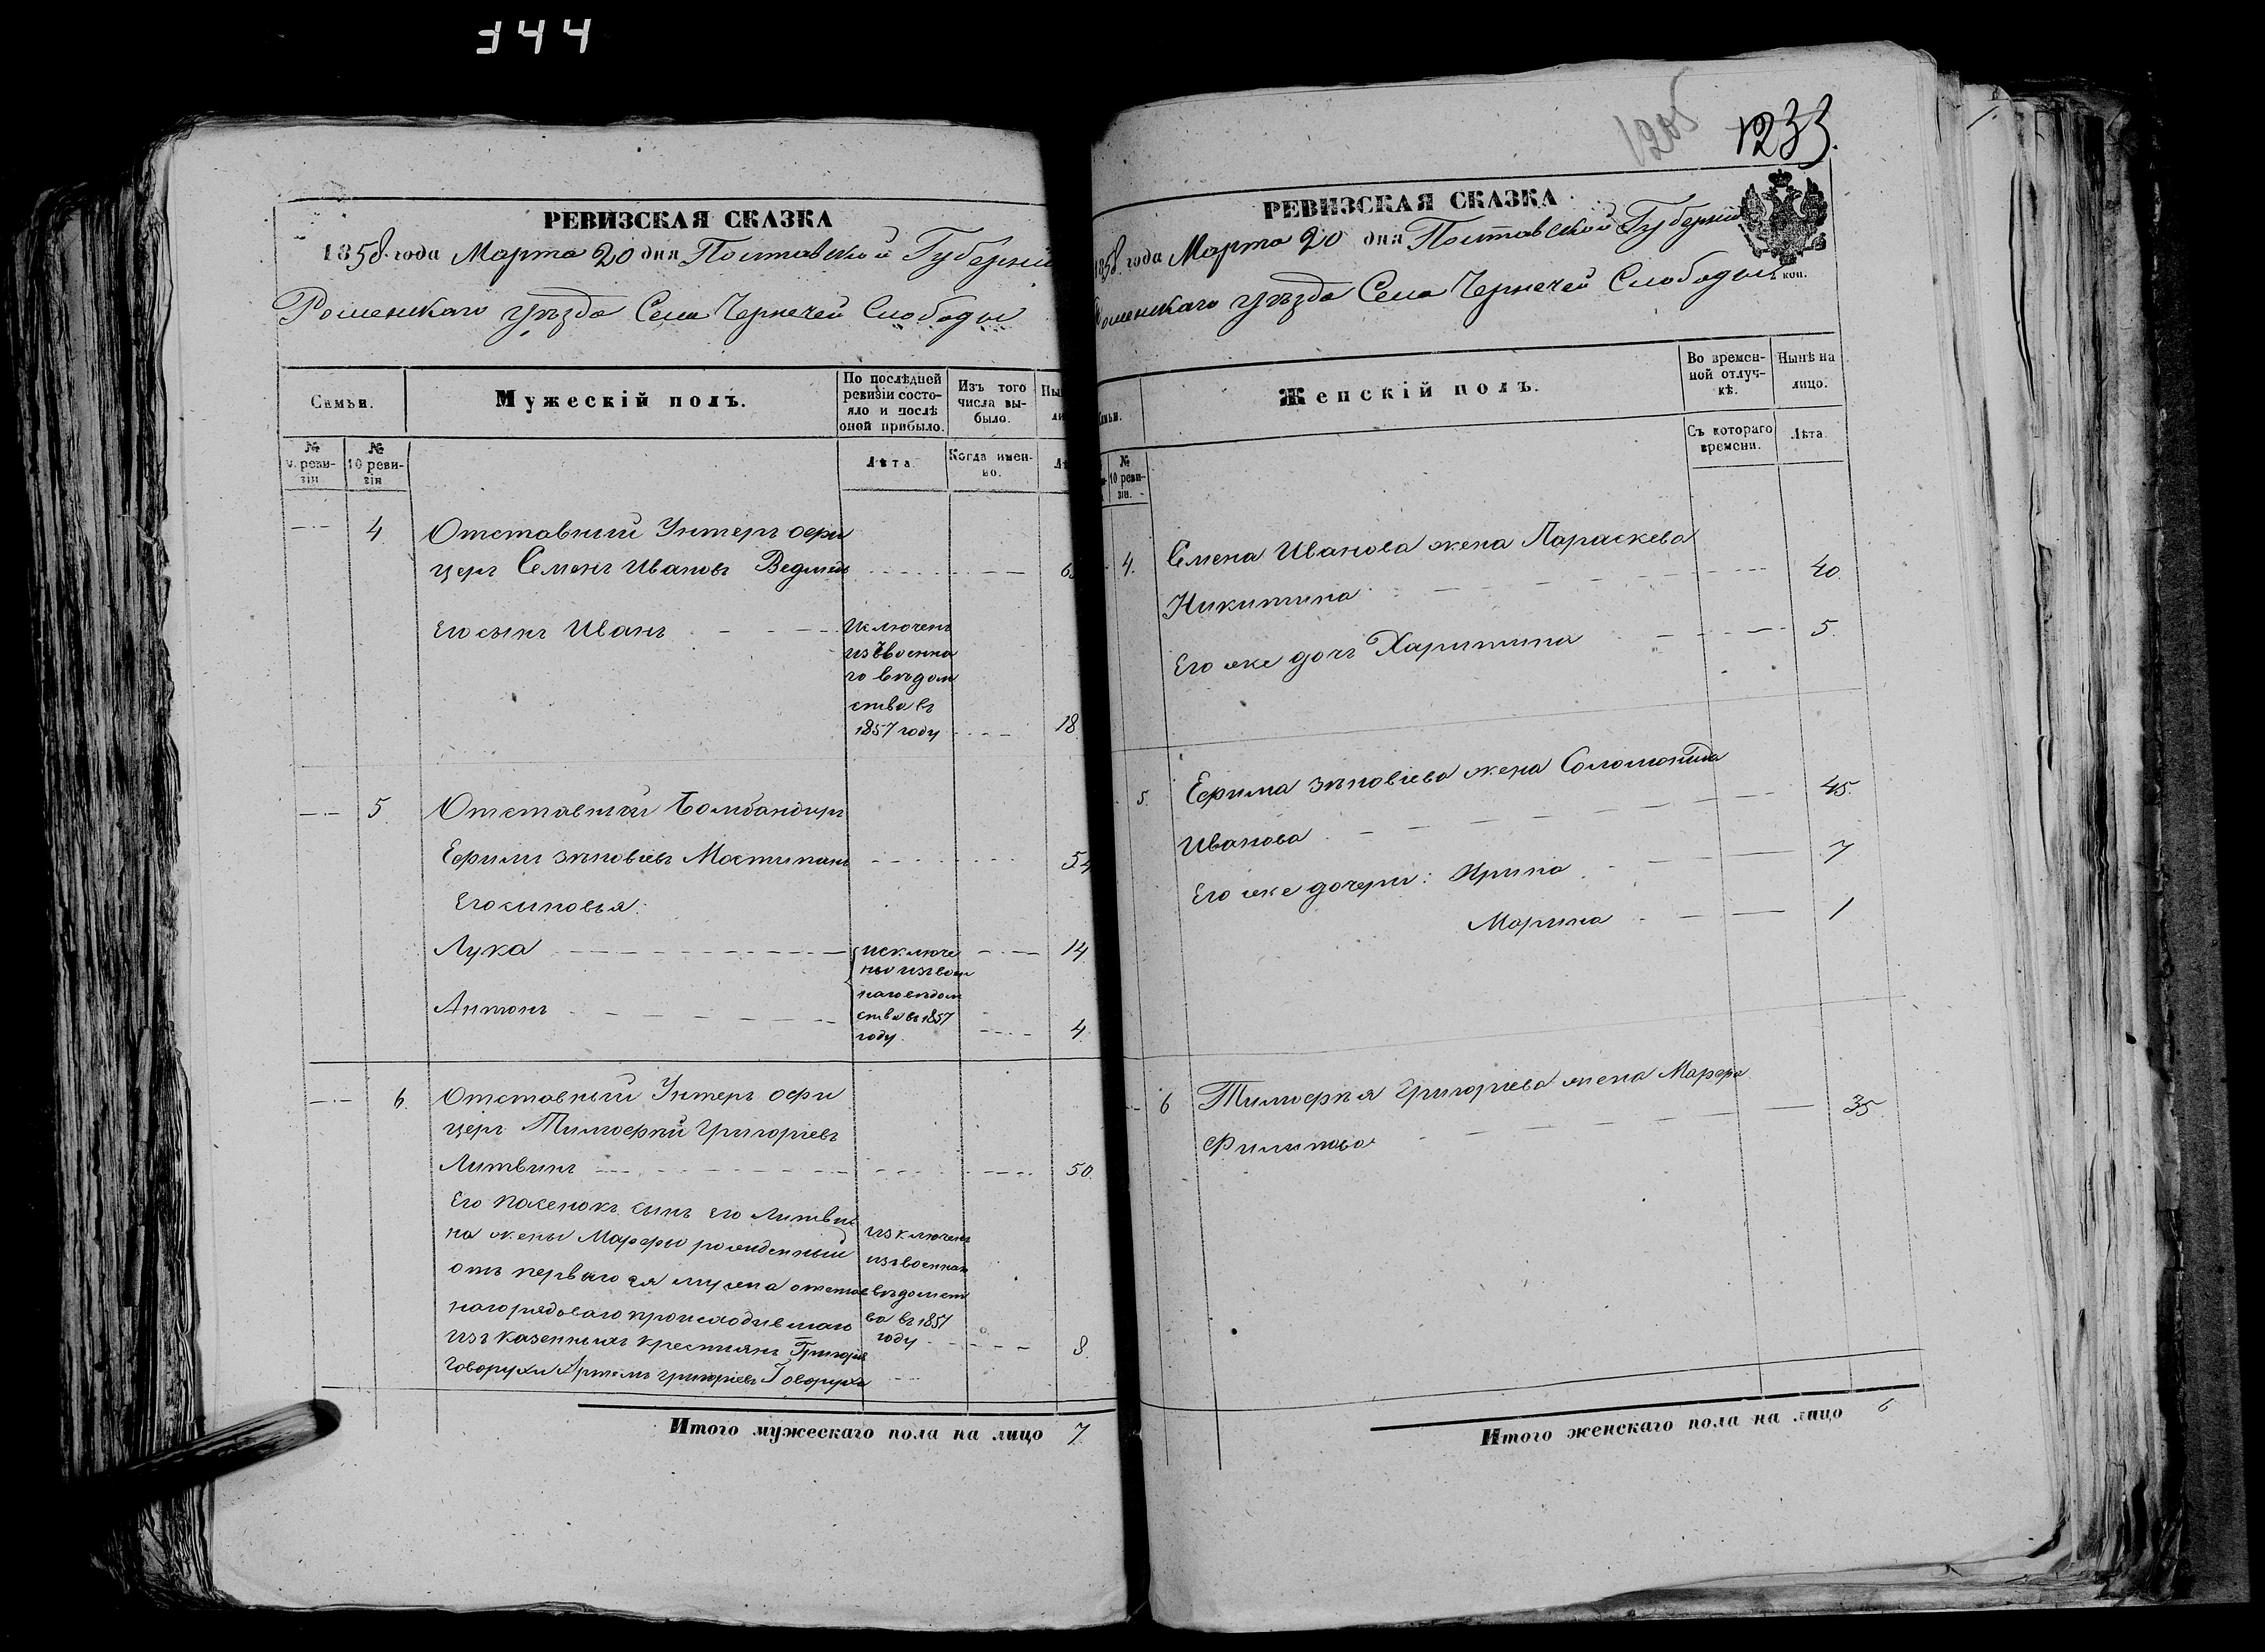 344
РЕВИЗСКАЯ СКАЗКА
1858 года Марта 20 дня Полтавской Губернии
Роменскаго уѣзда Села Чернечей Слободы
Семьи.
Мужескій полъ.
По послѣдней ревизіи состояло и послѣ оной прибыло.
Изъ того числа выбыло.
№ ревизіи
№ 10 ревизіи
Лѣта.
Когда именно.
4
Отставный Унтеръ офи
церъ Семенъ Ивановъ
Его сынъ Иванъ
Исключенъ
изъ военна
го вѣдом
ства въ
1857 году
18
5.
Отставный Бомбандиръ
Ефимъ Зѣновіевъ
54
Его синовья:
Лука
исключе
ны изъ воен
14
Антонъ
наго вѣдом
ства въ 1857
году
4
6.
Отставный Унтеръ офи
церъ Тимофѣй Григоріевъ
Литвинъ
50.
Его пасенокъ сынъ его Литви
на жены Марфы рожденный
изключенъ
изъ военнаго
отъ перваго ея мужа отстав
вѣдомст
наго рядоваго происходившаго
ва въ 1857
изъ казенныхъ крестьянъ Григорія
году
8.
Говорухи Артемъ Григоріевъ Говоруха
Итого мужескаго пола на лицо 7
1205
1233.
РЕВИЗСКАЯ СКАЗКА
1858 года Марта 20 дня Полтавской Губерніи
Роменскаго уѣзда Села Чернечей Слободы
коп.
Женскій полъ.
Во временной отлучкѣ.
Нынѣ на лицо.
№ 10 ревизіи.
Съ котораго времени.
Лѣта.
4.
Семена Иванова жена Параскева
Никитина
40.
Его же дочь Харитина
5.
5.
Ефима Зѣновіева жена Соломонида
Иванова
45.
Его же дочери: Ирина
7
Марина
1
6
Тимофѣя Григоріева жена Марфа
Филипова
35.
Итого женскаго пола на лицо 6